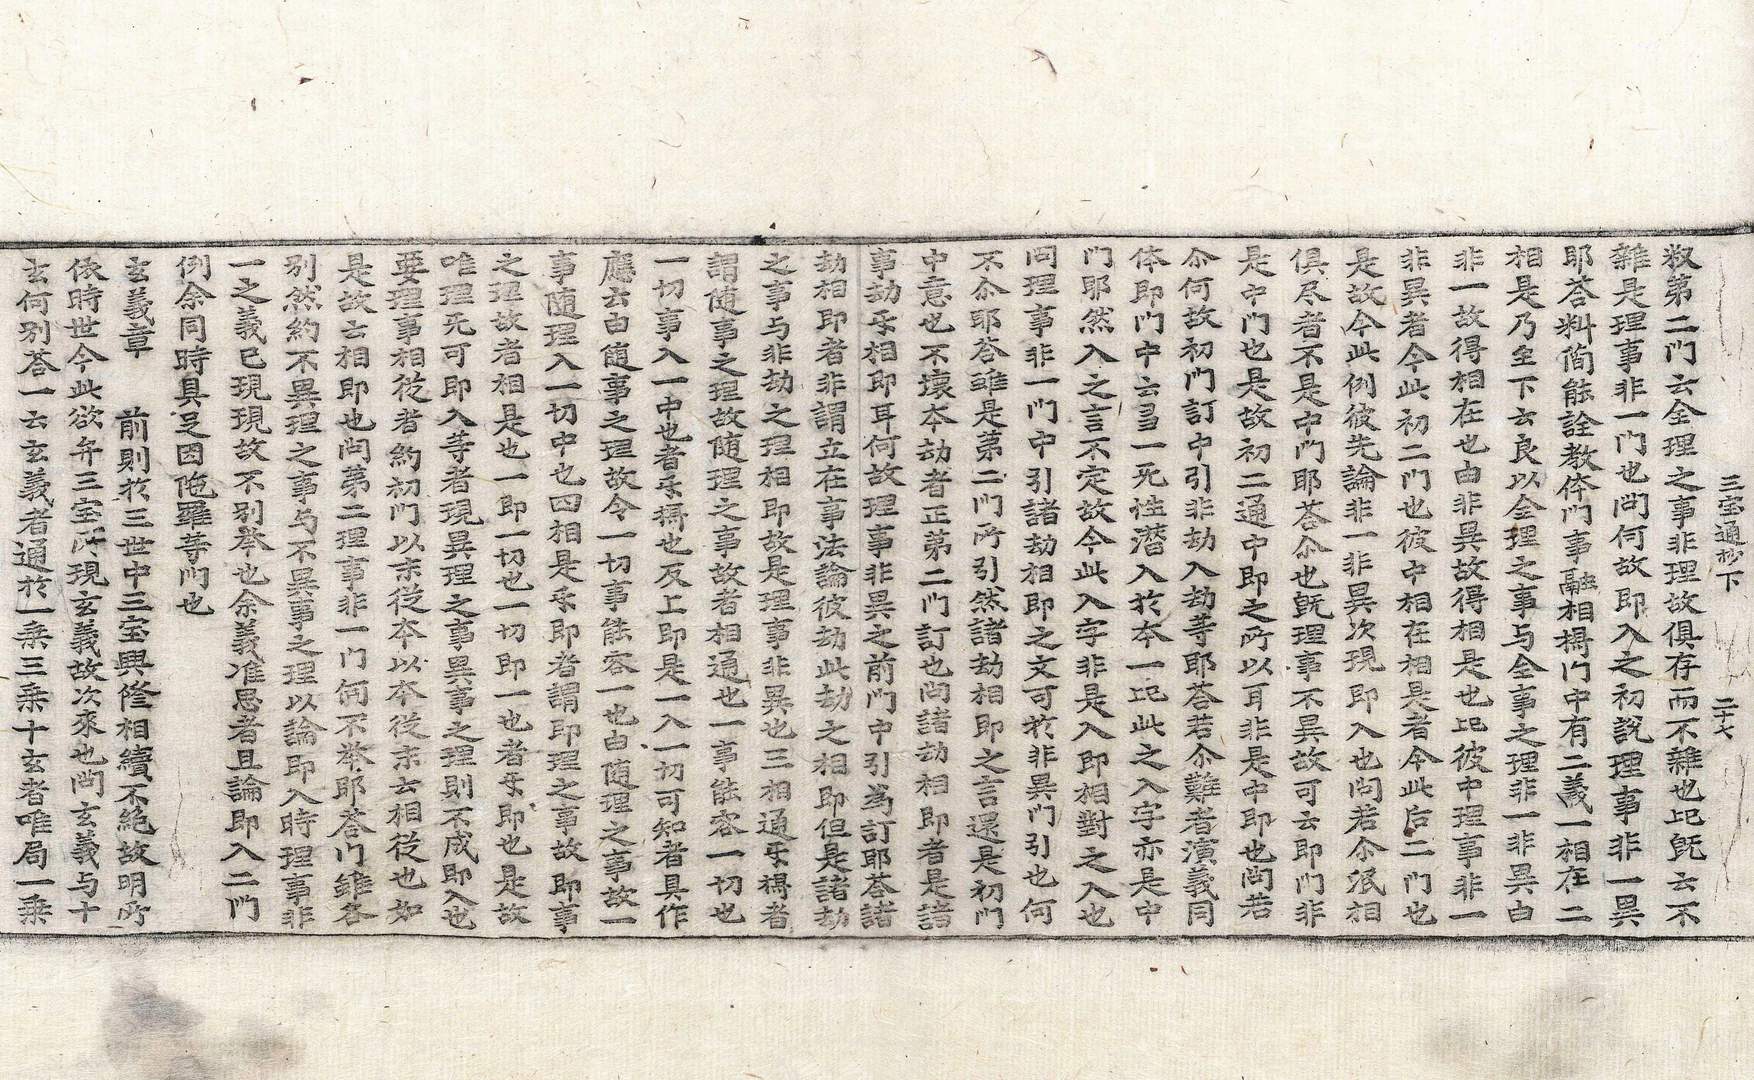 三宝通抄下　二十七
叙第二門云全理之事非理故俱存而不雜也此既云不
雜是理事非一門也问何故即入之初說理事非一異
耶荅料簡能詮教体门事融相攝门中有二義一相在二
相是乃至下云良以全理之事与全事之理非一非異由
非一故得相在也由非異故得相是也此彼中理事非一
非異者今此初二门也彼中相在相是者今此后二门也
是故今此例彼先論非一非異次現即入也问若尒泯相
俱尽者不是中门耶荅尒也既理事不異故可云即门非
是中门也是故初二通中即之所以耳非是中即也问若
尒何故初门訂中引非劫入劫等耶荅若尒難者演義同
体即门中云当一死性潜入於本一此此之入字亦是中
门耶然入之言不定故今此入字非是入即相對之入也
问理事非一门中引諸劫相即之文可於非異门引也何
不尒耶荅雖是第二门所引然諸劫相即之言還是初门
中意也不壞本劫者正第二门訂也问諸劫相即者是諸
事劫乎相即耳何故理事非異之前门中引爲訂耶荅諸
劫相即者非謂立在事法論彼劫此劫之相即但是諸劫
之事与非劫之理相即故是理事非異也三相通乎攝者
謂随事之理故随理之事故者相通也一事能容一切也
一切事入一中也者乎攝也反上即是一入一切可知者具作
應云由随事之理故令一切事能容一也由随理之事故一
事随理入一切中也四相是乎即者謂即理之事故即事
之理故者相是也一即一切也一切即一也者乎即也是故
唯理无可即入等者現異理之事異事之理則不成即入也
要理事相從者約初门以末從本以本從末云相從也如
是故云相即也问第二理事非一门何不举耶荅门雖各
別然約不異理之事与不異事之理以論即入時理事非
一之義已現現故不別举也余義准思者且論即入二门
例余同時具足因陁羅等门也
玄義章　前則於三世中三宝興隆相續不絶故明所
依時世今此欲弁三宝所現玄義故次来也问玄義与十
玄何別荅一云玄義者通於一乗三乗十玄者唯局一乗